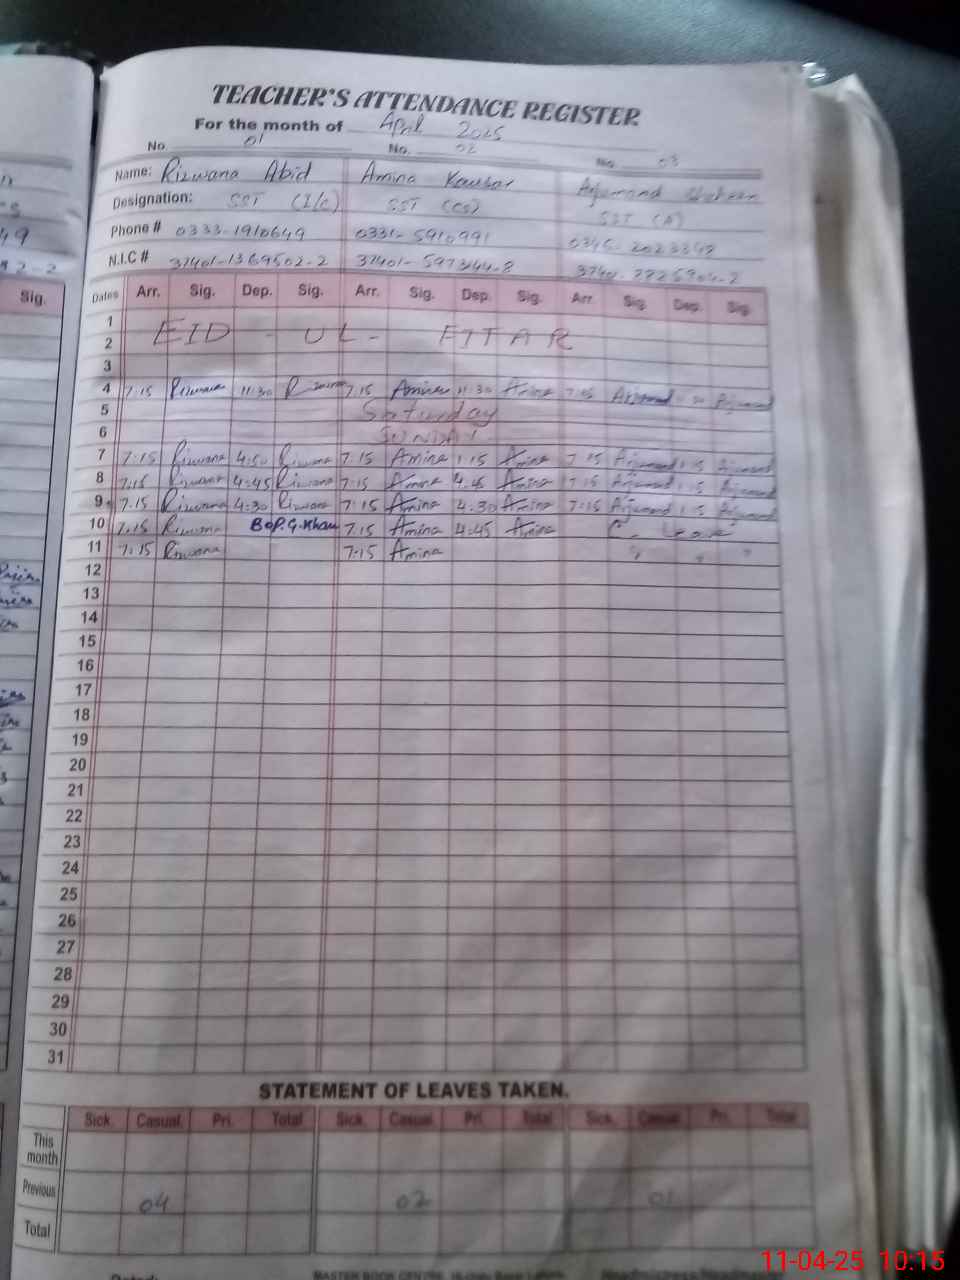 TEACHER'S ATTENDANCE REGISTER
For the month of April 2025
No. 01 No. 02 No. 03
Name: Rizwana Abid Amina Kausar Arjumand Shaheen
Designation: SST (I/c) SST (CS) SST (A)
Phone # 0333-1910649 0331-5910991 0345-2023348
N.I.C # 37401-1369502-2
Sig. Dates Arr. Sig. Dep. Sig. Arr. Sig. Dep. Sig. Arr. Sig. Dep. Sig.
1
2 EID - UL - FITAR
3
4 7:15 Rizwana 11:30 Rizwana 7.15 Amina 11:30 Amina 7:15 Arjumand Arjumand
5 Saturday
6 SUNDAY
7 7:15 Rizwana 4:50 Rizwana 7:15 Amina 1:15 Amina 7:15 Arjumand 1:15 Arjumand
8 7:15 Rizwana 4:45 Rizwana 7:15 Amina 4.45 Amina 7:15 Arjumand 1:15 Arjumand
9 7:15 Rizwana 4:30 Rizwana 7:15 Amina 4.30 Amina 7:15 Arjumand 1:15 Arjumand
10 7:15 Rizwana BoP.G.Khan 7.15 Amina 4:45 Amina C. Leave
11 7:15 Rizwana 7:15 Amina " " "
12
13
14
15
16
17
18
19
20
21
22
23
24
25
26
27
28
29
30
31
STATEMENT OF LEAVES TAKEN.
Sick. Casual. Pri. Total Sick. Casual. Pri. Total Sick. Casual. Pri. Total
This month
Previous 04 02 01
Total
MASTER BOOK CENTRE
11-04-25 10:15